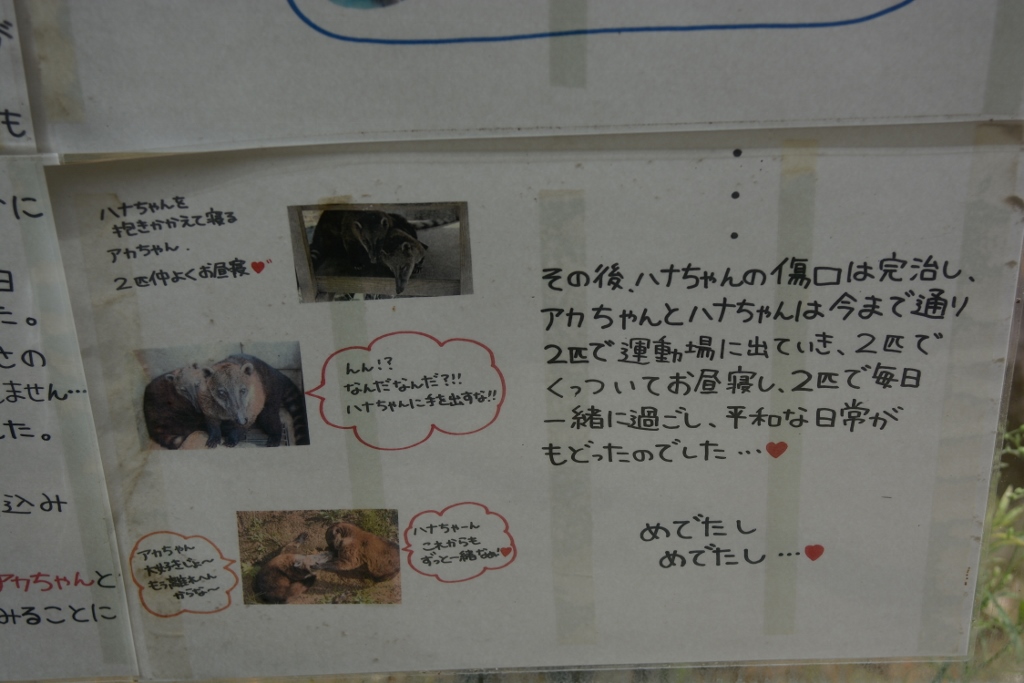 も
に
日
た。
さの
しません…
した。
込み
アカちゃんと
みることに
ハナちゃんを
抱きかかえて寝る
アカちゃん.
2匹仲よくお昼寝♥
んん!?
なんだなんだ?!!
ハナちゃんに手を出すな!!
アカちゃん
大好きじょ〜
もう離れへん
からな〜
ハナちゃーん
これからも
ずっと一緒なぁ♥
その後、ハナちゃんの傷口は完治し、
アカちゃんとハナちゃんは今まで通り
2匹で運動場に出ていき、2匹で
くっついてお昼寝し、2匹で毎日
一緒に過ごし、平和な日常が
もどったのでした…♥
めでたし
めでたし…♥